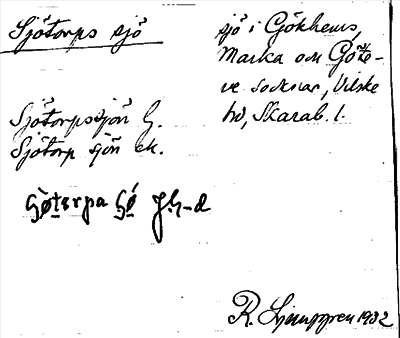 Sjötorps sjö
sjö i Gökhems,
Marka och Göte-
ve socknar, Vilske
hd, Skarab. l.
Sjötorpssjön G.
Sjötorp sjön ek.
R. Ljunggren 1932